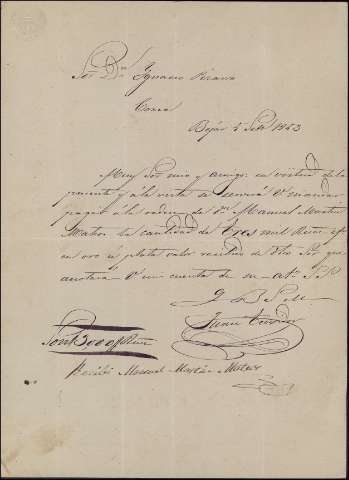 Sor Dn Ignacio
Coria
Bejar 4 Sete 1863
Muy Sor mio y amigo: en virtud de la
presente y á la vista se servirá V mandar
pagar á la orden de Dn Manuel Martin
Mateos la cantidad de tres mil Reales
en oro ó plata valor recibido de dho Sor que
anotará V en cuenta de su atto S S
Q B S M
Juan
Son 3000
Recibí Manuel Martin Mateos